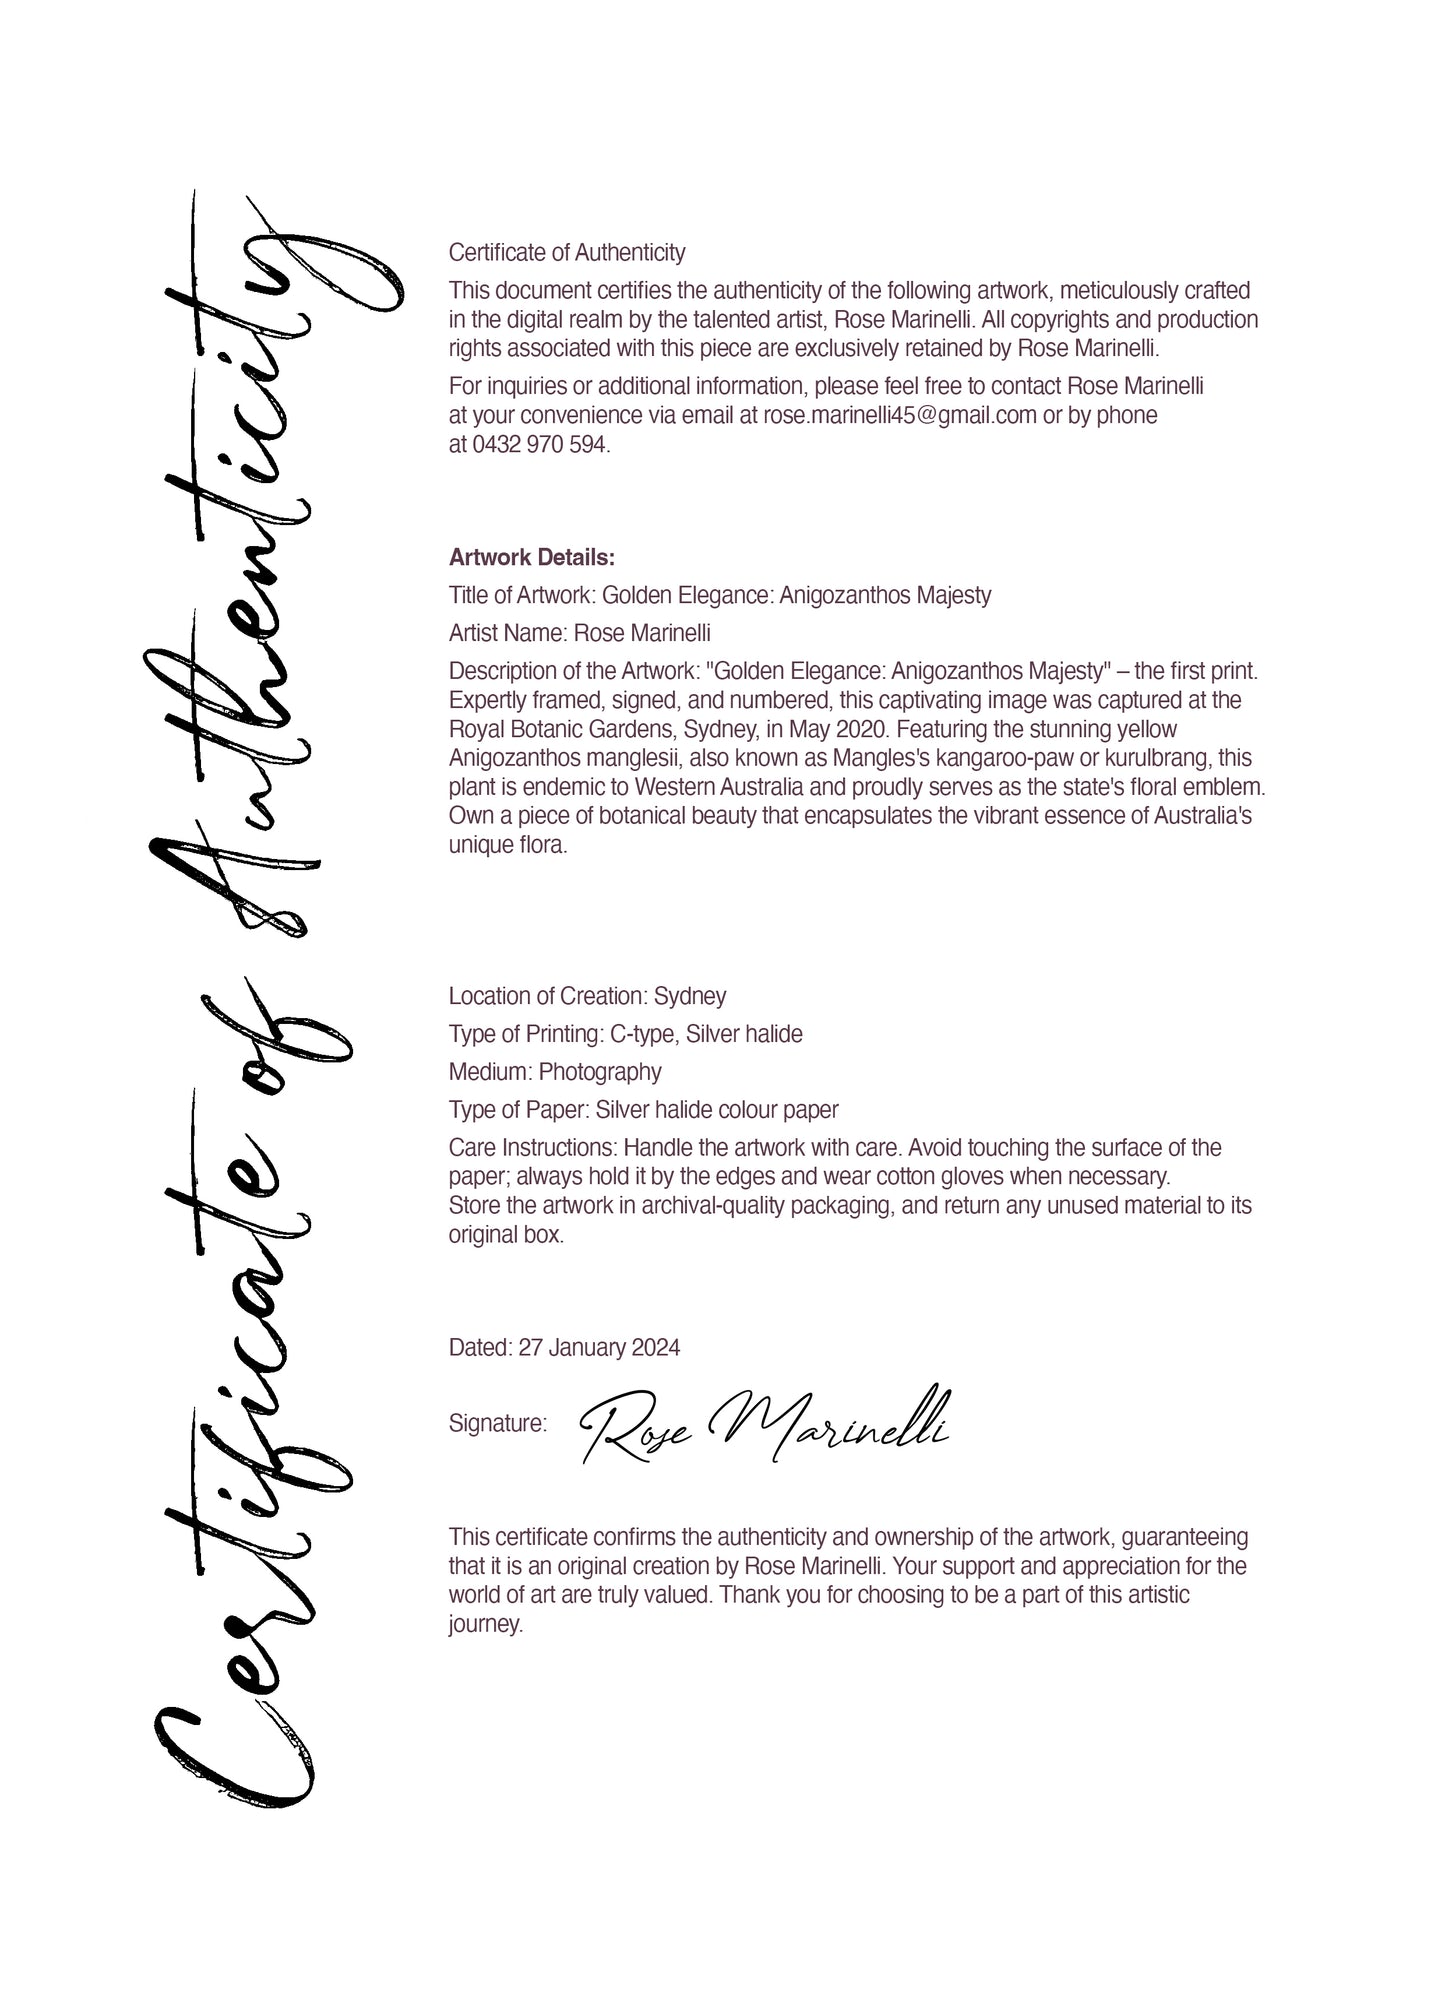 Certificate of Authenticity
Certificate of Authenticity
This document certifies the authenticity of the following artwork, meticulously crafted
in the digital realm by the talented artist, Rose Marinelli. All copyrights and production
rights associated with this piece are exclusively retained by Rose Marinelli.
For inquiries or additional information, please feel free to contact Rose Marinelli
at your convenience via email at rose.marinelli45@gmail.com or by phone
at 0432 970 594.
Artwork Details:
Title of Artwork: Golden Elegance: Anigozanthos Majesty
Artist Name: Rose Marinelli
Description of the Artwork: "Golden Elegance: Anigozanthos Majesty" – the first print.
Expertly framed, signed, and numbered, this captivating image was captured at the
Royal Botanic Gardens, Sydney, in May 2020. Featuring the stunning yellow
Anigozanthos manglesii, also known as Mangles's kangaroo-paw or kurulbrang, this
plant is endemic to Western Australia and proudly serves as the state's floral emblem.
Own a piece of botanical beauty that encapsulates the vibrant essence of Australia's
unique flora.
Location of Creation: Sydney
Type of Printing: C-type, Silver halide
Medium: Photography
Type of Paper: Silver halide colour paper
Care Instructions: Handle the artwork with care. Avoid touching the surface of the
paper; always hold it by the edges and wear cotton gloves when necessary.
Store the artwork in archival-quality packaging, and return any unused material to its
original box.
Dated: 27 January 2024
Signature: Rose Marinelli
This certificate confirms the authenticity and ownership of the artwork, guaranteeing
that it is an original creation by Rose Marinelli. Your support and appreciation for the
world of art are truly valued. Thank you for choosing to be a part of this artistic
journey.